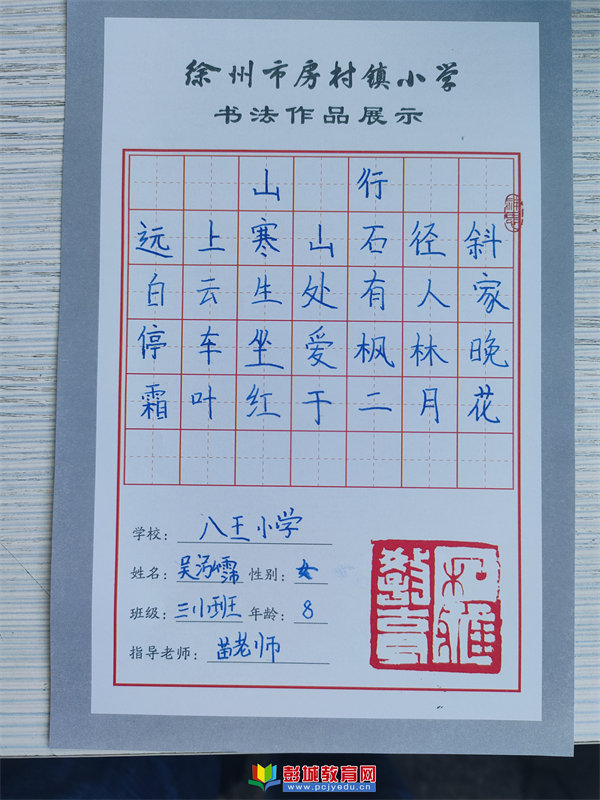 徐州市房村镇小学
书法作品展示
山行
远上寒山石径斜
白云生处有人家
停车坐爱枫林晚
霜叶红于二月花
学校: 八王小学
姓名: 吴 性别: 女
班级: 三 班 年龄: 8
指导老师: 苗老师
彭城教育网
www.pcjyedu.cn